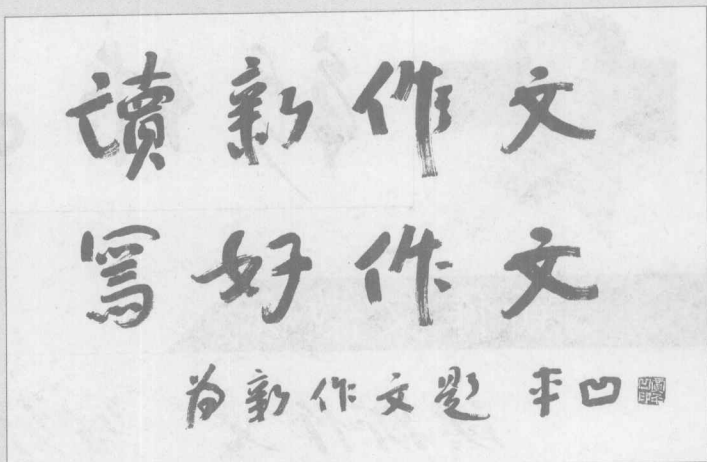 讀新作文
寫好作文
为新作文題 平凹